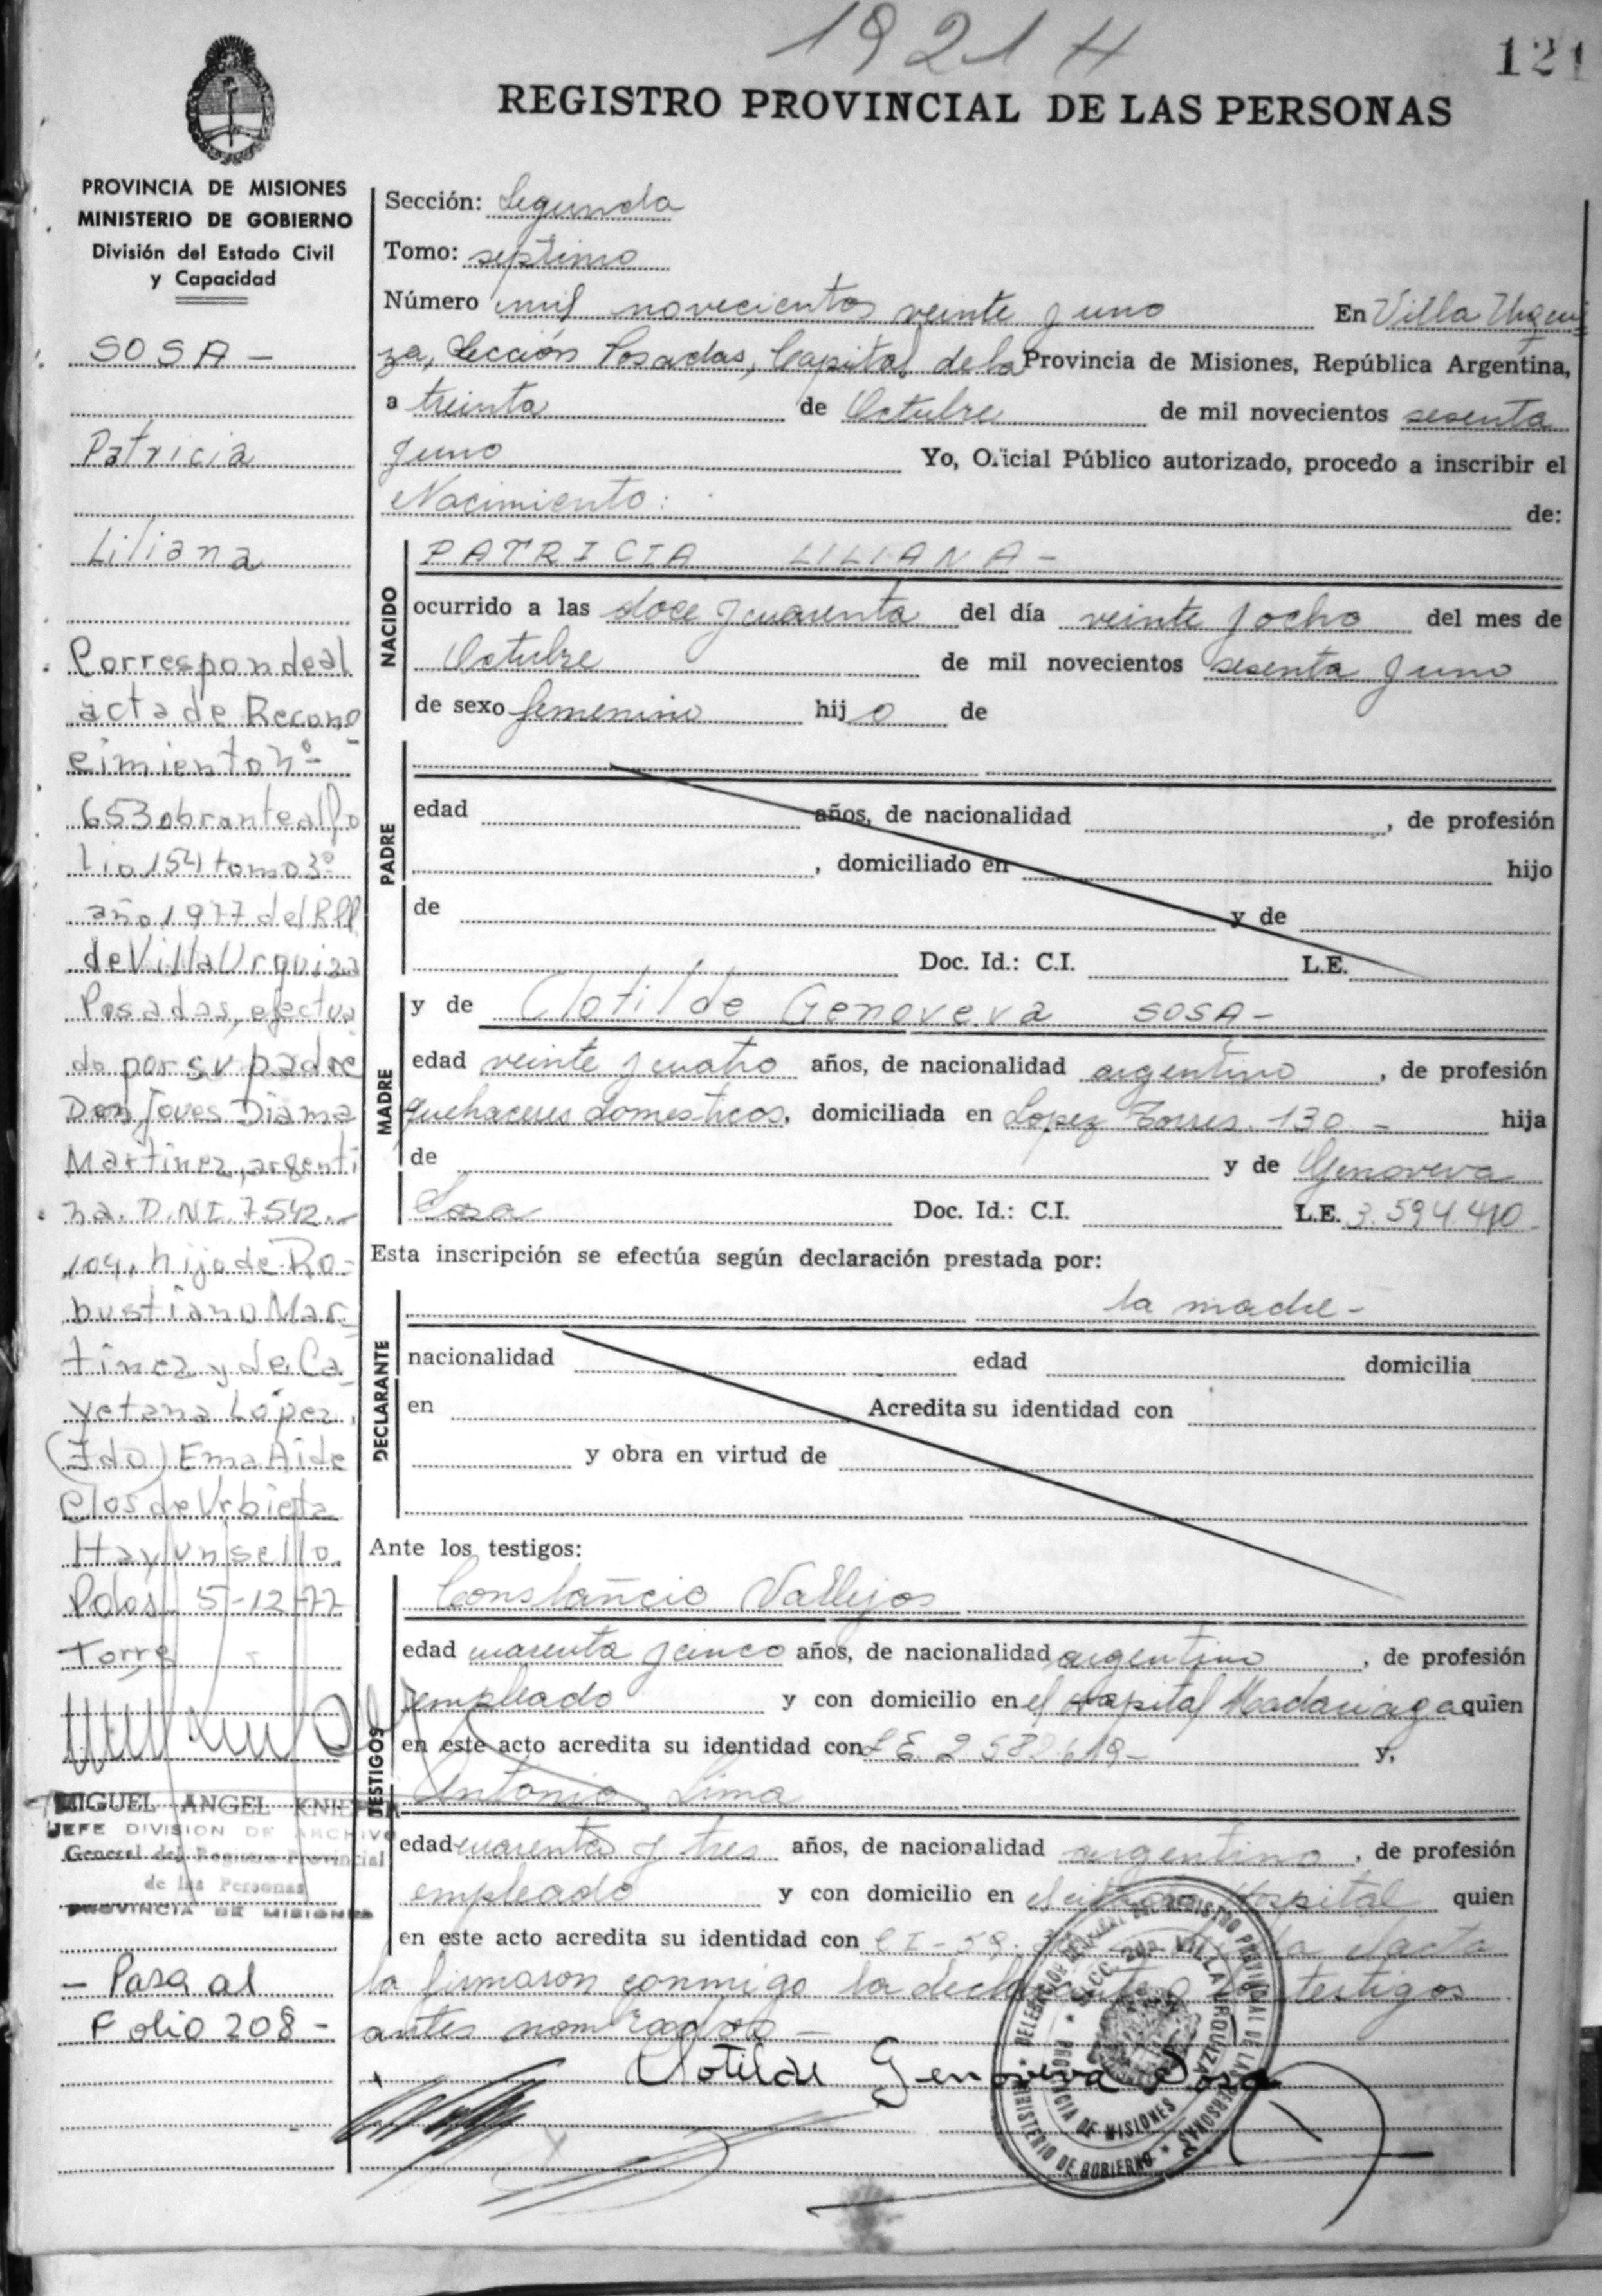 1921 H
121
REGISTRO PROVINCIAL DE LAS PERSONAS
PROVINCIA DE MISIONES
MINISTERIO DE GOBIERNO
División del Estado Civil
y Capacidad
SOSA -
Patricia
Liliana
Corresponde al
acta de Recono
cimiento nº
653 obrante al fo
lio 154 tomo 3º
año 1977 del RPP
de Villa Urquiza
Posadas, efectua
do por su padre
Don Joves Diama
Martinez, argenti
na. D.N.I. 7.542.-
104, hijo de Ro-
bustiano Mar-
tinez y de Ca-
yetana López.
(Fdo) Ema Aide
Clos de Urbieta
Hay un sello.
Pdas 5-12-77
Torre
MIGUEL ANGEL
JEFE DIVISION DE ARCHIVO
General del Registro Provincial
de las Personas
PROVINCIA DE MISIONES
- Pasa al
Folio 208 -
Sección: Segunda
Tomo: septimo
Número mil novecientos veinte y uno En Villa Urqui
za, Sección Posadas, Capital de la Provincia de Misiones, República Argentina,
a treinta de Octubre de mil novecientos sesenta
y uno Yo, Oficial Público autorizado, procedo a inscribir el
Nacimiento: de:
NACIDO
PATRICIA LILIANA -
ocurrido a las doce y cuarenta del día veinte y ocho del mes de
Octubre de mil novecientos sesenta y uno
de sexo femenino hij o de
PADRE
edad años, de nacionalidad , de profesión
, domiciliado en hijo
de y de
Doc. Id.: C.I. L.E.
MADRE
y de Clotilde Genoveva SOSA -
edad veinte y cuatro años, de nacionalidad argentino , de profesión
quehaceres domesticos, domiciliada en Lopez Torres 130 - hija
de y de Genoveva
Sosa Doc. Id.: C.I. L.E. 3.594.410
Esta inscripción se efectúa según declaración prestada por:
DECLARANTE
la madre -
nacionalidad edad domicilia
en Acredita su identidad con
y obra en virtud de
Ante los testigos:
TESTIGOS
Constancio Vallejos
edad cuarenta y cinco años, de nacionalidad argentino , de profesión
empleado y con domicilio en el Hospital Madariaga quien
en este acto acredita su identidad con L E 2 582 619 - y,
Antonio Lima
edad cuarenta y tres años, de nacionalidad argentino , de profesión
empleado y con domicilio en el citado Hospital quien
en este acto acredita su identidad con C I -
la firmaron conmigo la declarante testigos
antes nombrados -
Clotilde Genoveva Sosa
DELEGACION REGISTRO PROVINCIAL DE LAS PERSONAS
SECC. 2da. VILLA URQUIZA
PROVINCIA DE MISIONES
MINISTERIO DE GOBIERNO